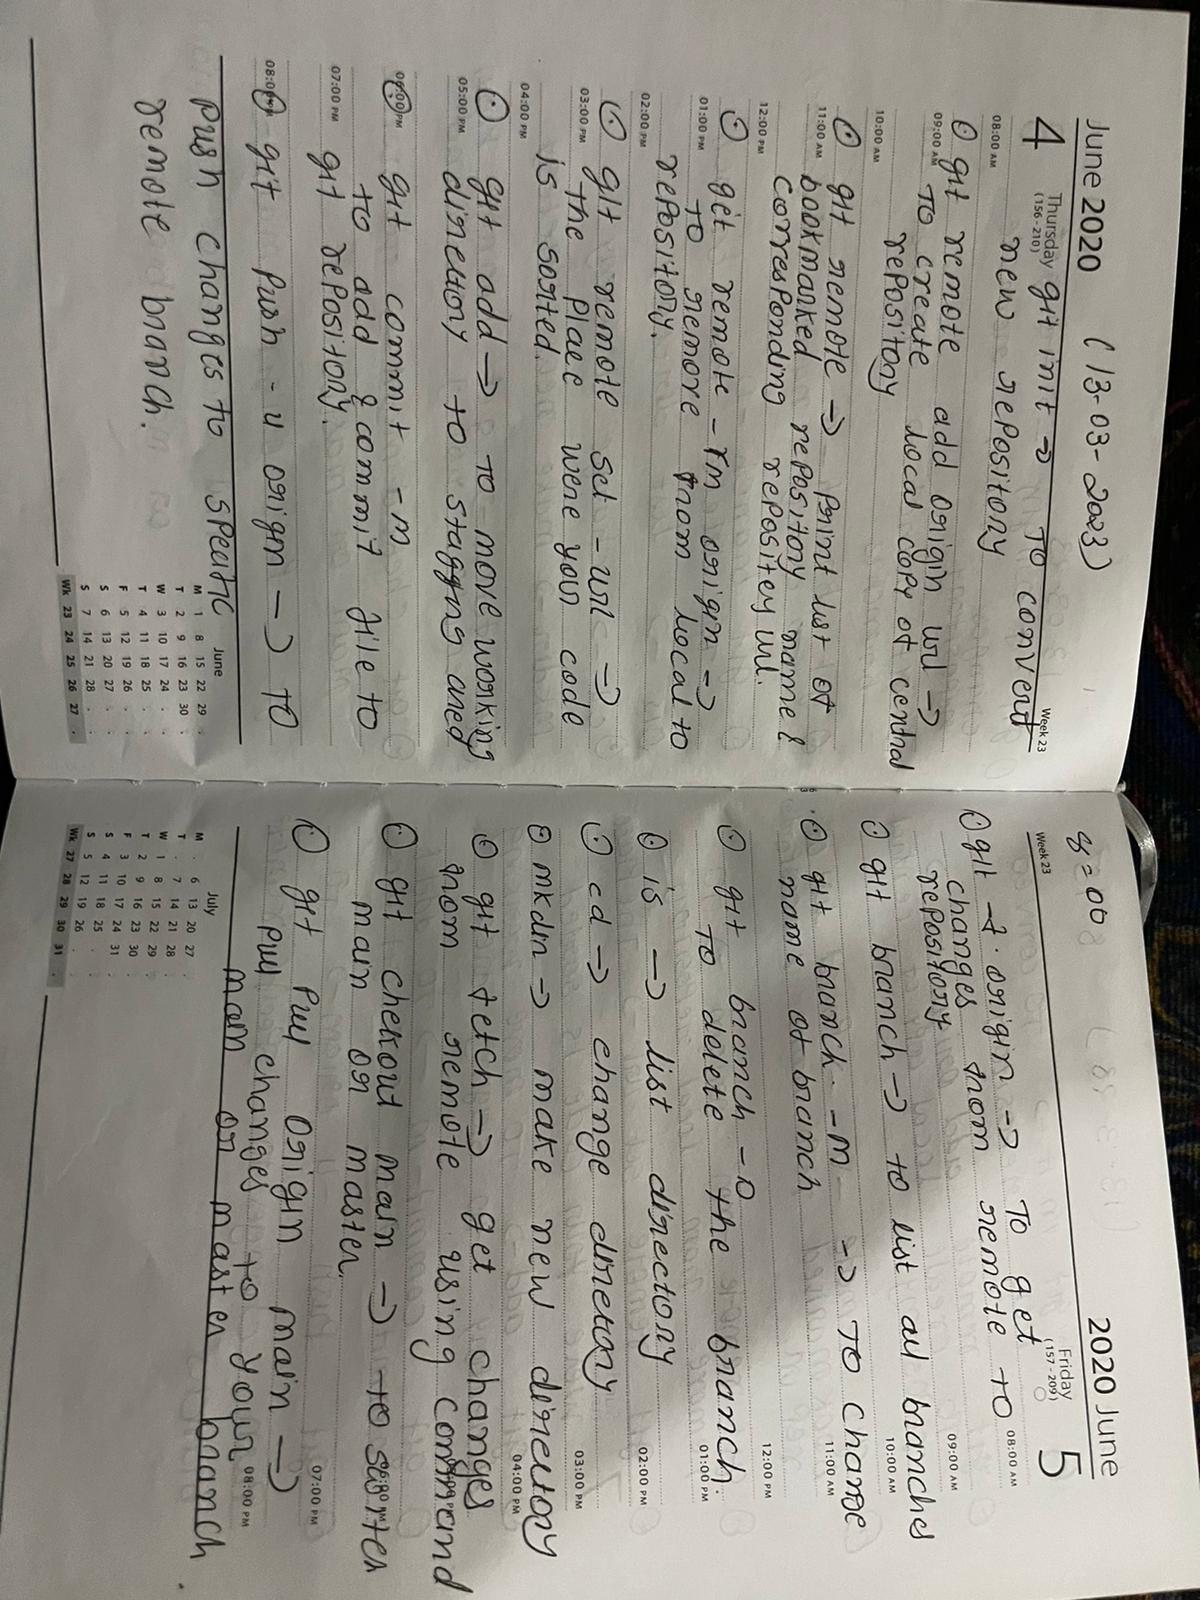 June 2020 (13-03-2023)
4 Thursday git init → To convert
(156-210)
Week 23
08:00 AM new repository
git remote add origin url →
09:00 AM To create local copy of central
repository
10:00 AM
git remote → print list of
11:00 AM bookmarked repository name &
corresponding repositey url.
12:00 PM
git remote -rm origin →
01:00 PM to remore from local to
repository.
02:00 PM
git remote set-url →
03:00 PM the place were your code
is sorted.
04:00 PM
git add → to move working
05:00 PM directory to stagging ared
06:00 PM git commit -m
to add & commit file to
07:00 PM git repository.
08:00 PM git push -u origin → To
push changes to speatic
remote branch.
June
M 1 8 15 22 29 .
T 2 9 16 23 30 .
W 3 10 17 24 . .
T 4 11 18 25 . .
F 5 12 19 26 . .
S 6 13 20 27 . .
S 7 14 21 28 . .
Wk 23 24 25 26 27 .
8=00
2020 June
Week 23
Friday 5
(157-209)
origin → To get
08:00 AM
changes from remote to
repository
09:00 AM
git branch → to list all branches
10:00 AM
git branch -m → To change
11:00 AM
name of branch
12:00 PM
git branch -D
To delete the branch.
01:00 PM
is → list directory
02:00 PM
cd → change directory
03:00 PM
mkdir → make new directory
04:00 PM
git fetch → get changes
from remote using command
git chekout main →
main or master.
07:00 PM
git pull origin main →
pull changes to your
08:00 PM
main or master branch
July
M . 6 13 20 27 .
T . 7 14 21 28 .
W 1 8 15 22 29 .
T 2 9 16 23 30 .
F 3 10 17 24 31 .
S 4 11 18 25 . .
S 5 12 19 26 . .
Wk 27 28 29 30 31 .